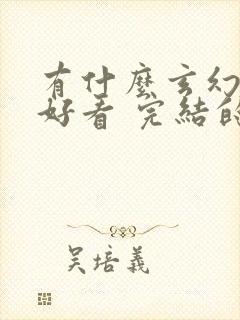 有什麼玄幻
好看 完結的
吳培義